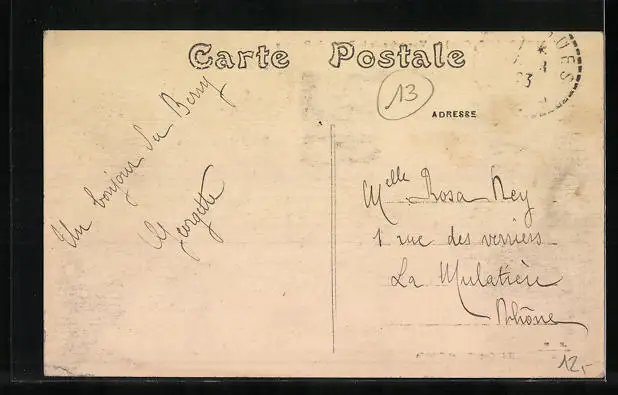 Carte Postale
13
ADRESSE
Un bonjour du Berry
Georgette
Melle Rosa Rey
1 rue des verriers
La Mulatière
Rhône
12,-